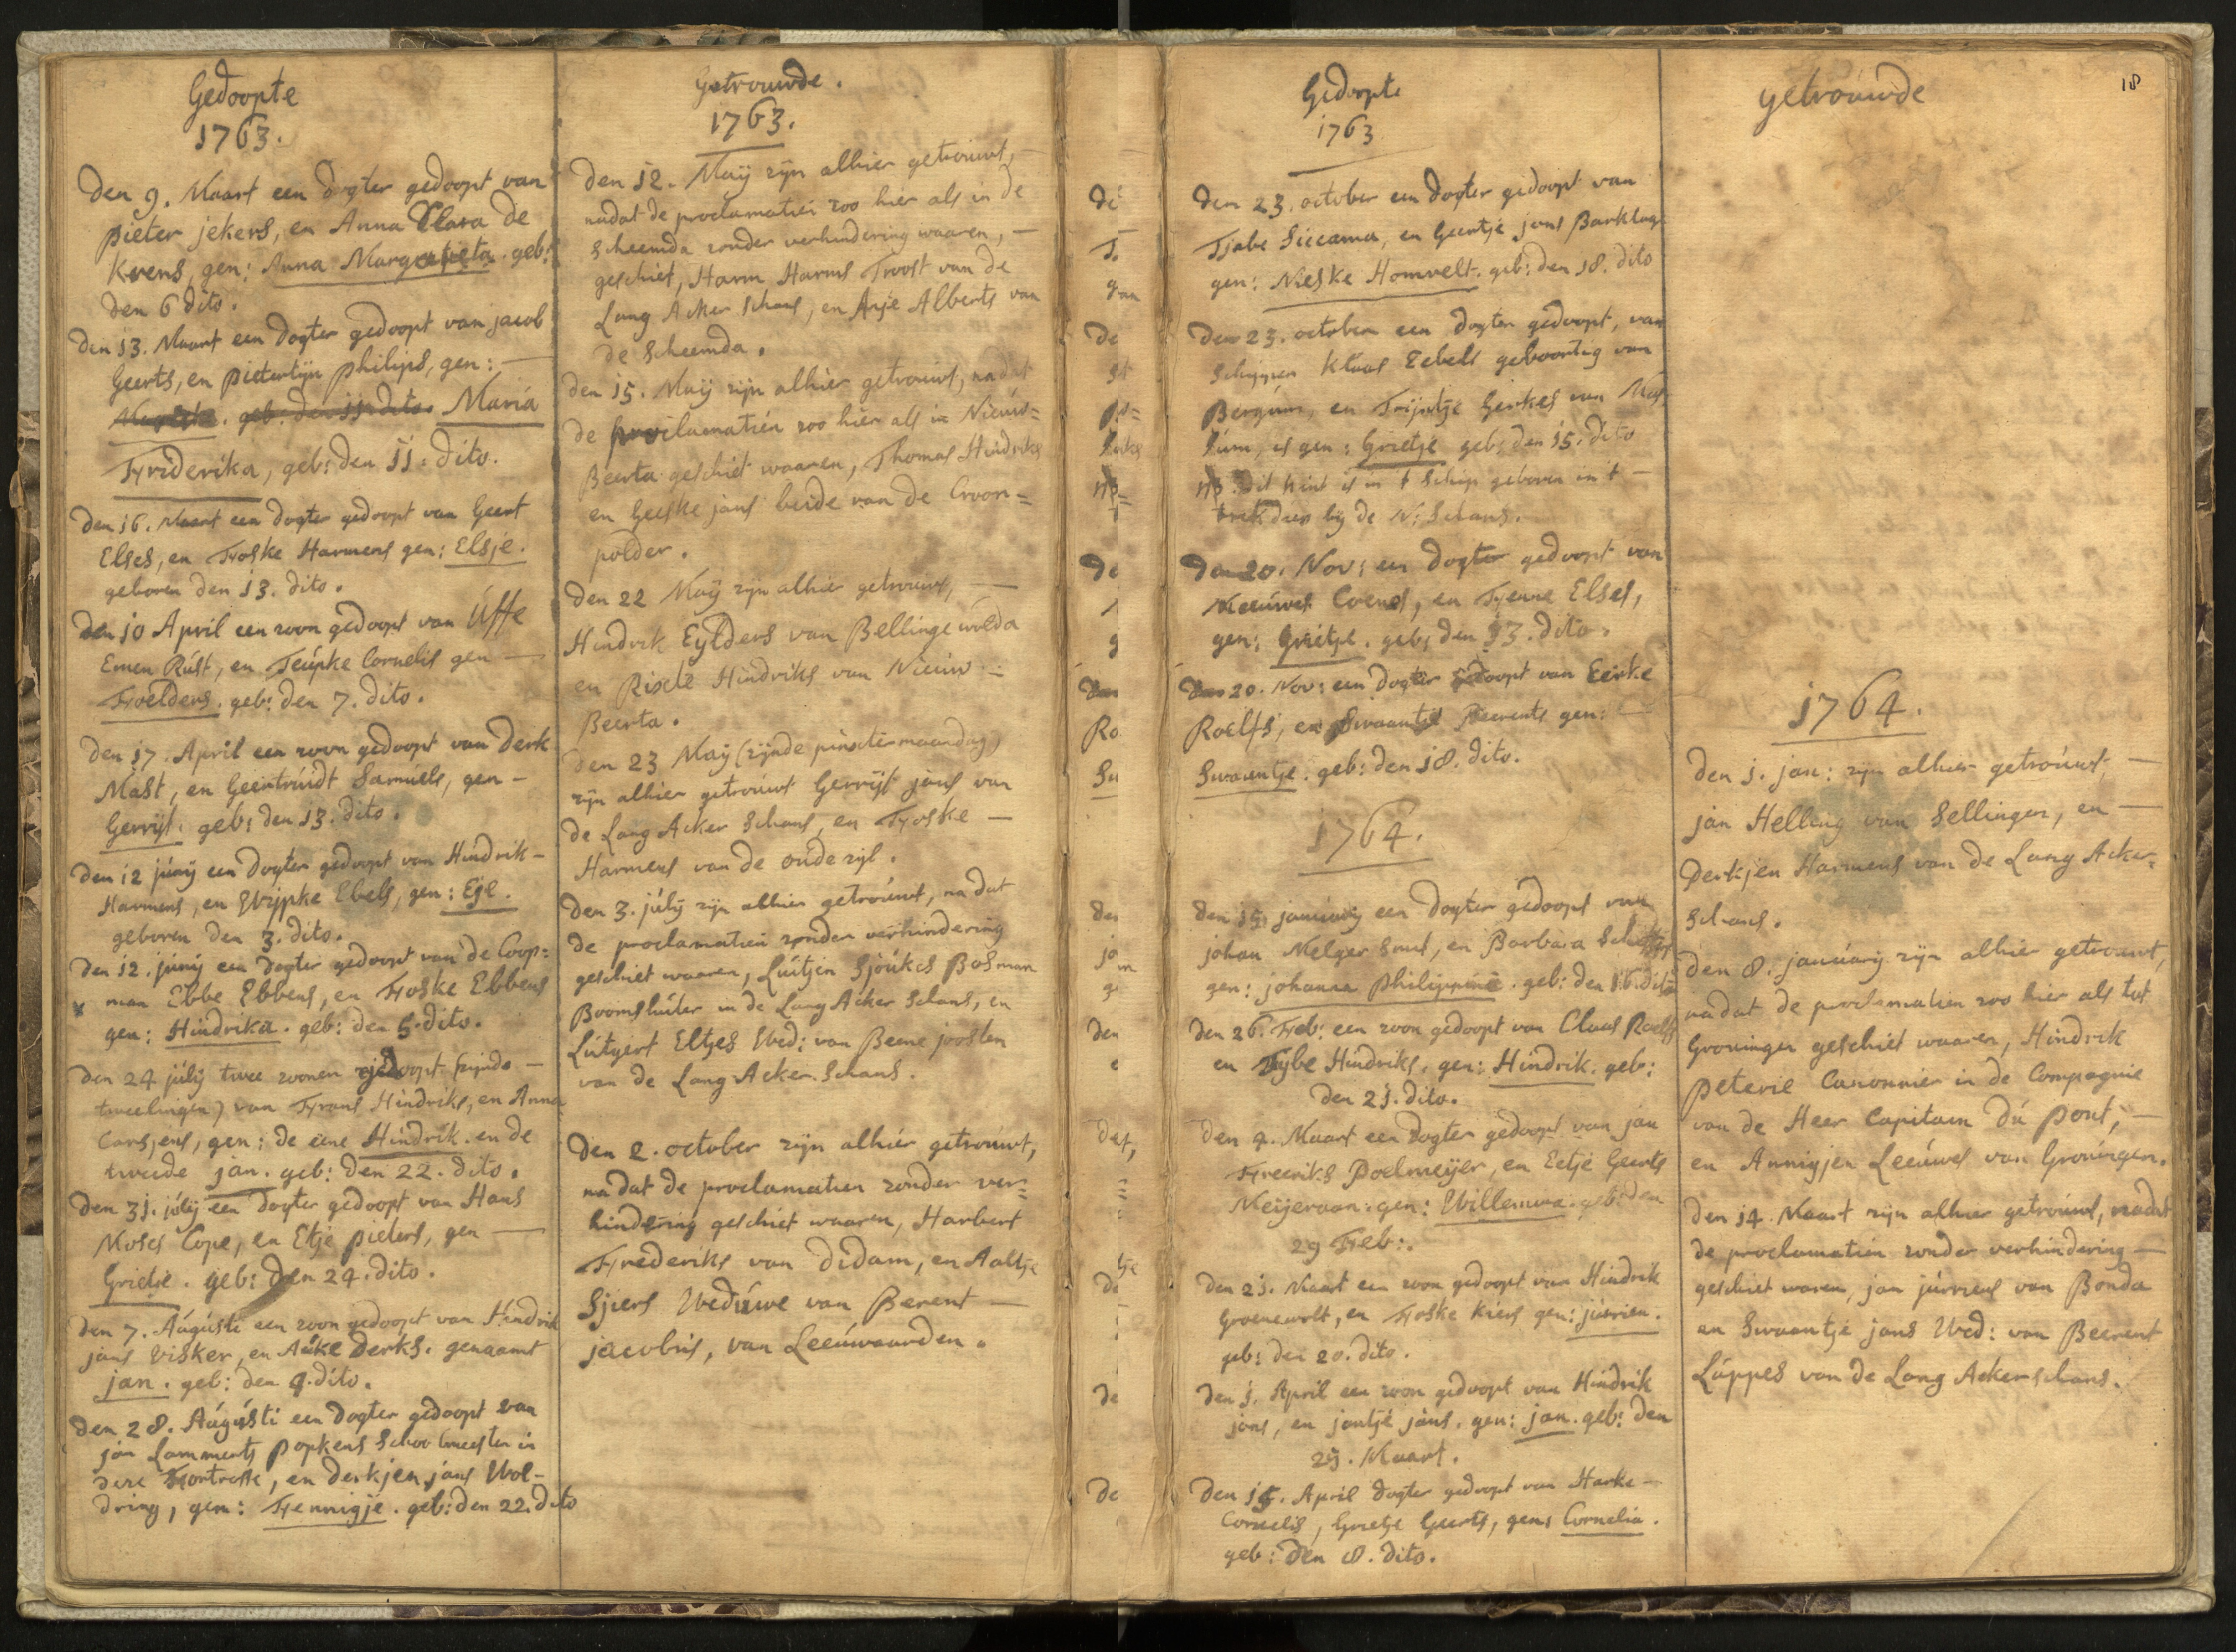 Gedoopte
1763.
Den 9. Maart een dogter gedoopt van
pieter jekers, en Anna Clara de
Kvens, gen: Anna Margarieta. geb:
den 6 dito.
Den 13. Maart een dogter gedoopt van jacob
Geerts, en pietertijn philips, gen: —
geb: den 11 dito. Maria
Friderika, geb: den 11. dito.
Den 16. Maart een dogter gedoopt van Geert
Elses, en Foske Harmens gen: Elsje.
geboren den 13. dito.
Den 10 April een zoon gedoopt van Uffe
Emen Rúst, en Teúpke Cornelis gen —
Foelders. geb: den 7. dito.
Den 17. April een zoon gedoopt van Derk
Mast, en Geertrúidt Samúels, gen —
Gerrijt. geb: den 13. dito.
Den 12 júnij een dogter gedoopt van Hindrik —
Harmens, en Wijpke Ebels, gen: Eje.
geboren den 3. dito.
Den 12. júnij een dogter gedoopt van de Coop=
man Ebbe Ebbens, en Foske Ebbens
gen: Hindrika. geb: den 5. dito.
Den 24 júlij twee zoonen gedoopt (zijnde —
tweelingen) van Frans Hindriks, en Anna
Carsjens, gen: de eene Hindrik. en de
tweede jan. geb: den 22. dito.
Den 31. júlij een dogter gedoopt van Hans
Moses Cope, en Etje pieters, gen —
Grietje. geb: den 24. dito.
Den 7. Aúgústi een zoon gedoopt van Hindrik
jans Visker, en Aúke Derks. genaamt
jan. geb: den 4. dito.
Den 28. Aúgústi een dogter gedoopt van
jan Lammerts popkens Schoolmeester in
dese Fortresse, en Derkjen jans Wol-
dring, gen: Fennigje. geb: den 22. dito
Getrouwde.
1763.
Den 12. Maij zijn alhier getrouwt, —
nadat de proclamatien zoo hier als in de
Scheemda zonder verhindering waaren, —
geschiet, Harm Harms Troost van de
Lang Acker Schans, en Anje Alberts van
de Scheemda.
Den 15. Maij zijn alhier getrouwt, nadat
de proclamatien zoo hier als in Nieúw=
Beerta geschiet waaren, Thomas Hindriks
en Geeske jans beide van de Croon=
polder.
Den 22 Maij zijn alhier getrouwt, —
Hindrik Eylders van Bellingewolda
en Rixte Hindriks van Nieuw —
Beerta.
Den 23 Maij (zijnde pinxtermaandag)
zijn alhier getroúwt Gerrijt jans van
de Lang Acker Schans, en Foske —
Harmens van de oúdezijl.
Den 3. júlij zijn alhier getroúwt, nadat
de proclamatien zonder verhindering
geschiet waaren, Lúitjen Sjoúkes Bosman
Boomslúiter in de Lang Acker Schans, en
Lútgert Eltjes Wed: van Beene joosten
van de Lang Acker Schans.
Den 2. october zijn alhier getroúwt,
nadat de proclamatien zonder ver=
hindering geschiet waaren, Harbert
Frederiks van Didam, en Aaltje
Sjiers Wedúwe van Berent —
jacobús, van Leeúwaarden.
Gedoopte
1763
Den 23. october een dogter gedoopt van
Tjabe Siccama, en Geertje jans Barklage
gen: Nieske Homvelt. geb: den 18. dito
Den 23. october een dogter gedoopt, van
Schipper Klaas Eebels geboortig van
Bergúm, en Trijntje Gerkes van
is gen: Grietje geb: den 15. dito
NB. dit kint is in t Schip geboren in t —
trekdiep bij de N: Schans.
Den 20. Nov: een dogter gedoopt van
Meeúwes Coenes, en Fenne Elses,
gen: Grietje. geb: den 13. dito.
Den 20. Nov: een dogter gedoopt van Eerke
Roelfs, en Swaantje Beerents gen: —
Swaantje. geb: den 18. dito.
1764.
Den 15. janúarij een dogter gedoopt van
johan Melger Smit, en Barbara
gen: johanna philippine. geb: den dito
Den 26. Feb: een zoon gedoopt van Claas Roelfs
en Tijbe Hindriks, gen: Hindrik. geb:
den 21. dito.
Den 4. Maart een dogter gedoopt van jan
Freeriks Poelmeijer, en Eetje Geerts
Meijeraan. gen: Willemina. geb: den
29 Feb:.
Den 25. Maart een zoon gedoopt van Hindrik
Groenewolt, en Foske Kiers gen: júrrien.
geb: den 20. dito.
Den 1. April een zoon gedoopt van Hindrik
jans, en jantje jans. gen: jan. geb: den
29. Maart.
Den 15. April dogter gedoopt van Harke —
Cornelis, Grietje Geerts, gen: Cornelia.
geb: den 8. dito.
getroúwde
18
1764.
Den 1. jan: zijn alhier getroúwt, —
jan Helling van Sellingen, en —
Derkjen Harmens van de Lang Acker=
schans.
Den 8. janúarij zijn alhier getrouwt,
nadat de proclamatien zoo hier als tot
Groningen geschiet waaren, Hindrik
peterie Canonnier in de Compagnie
van de Heer Capitain dú pont, —
en Annigjen Leeúwes van Groningen.
Den 14. Maart zijn alhier getroúwt, nadat
de proclamatien zonder verhindering —
geschiet waren, jan júrriens van Bonda
en Swaantje jans Wed: van Beerent
Lúppes van de Lang Ackerschans.